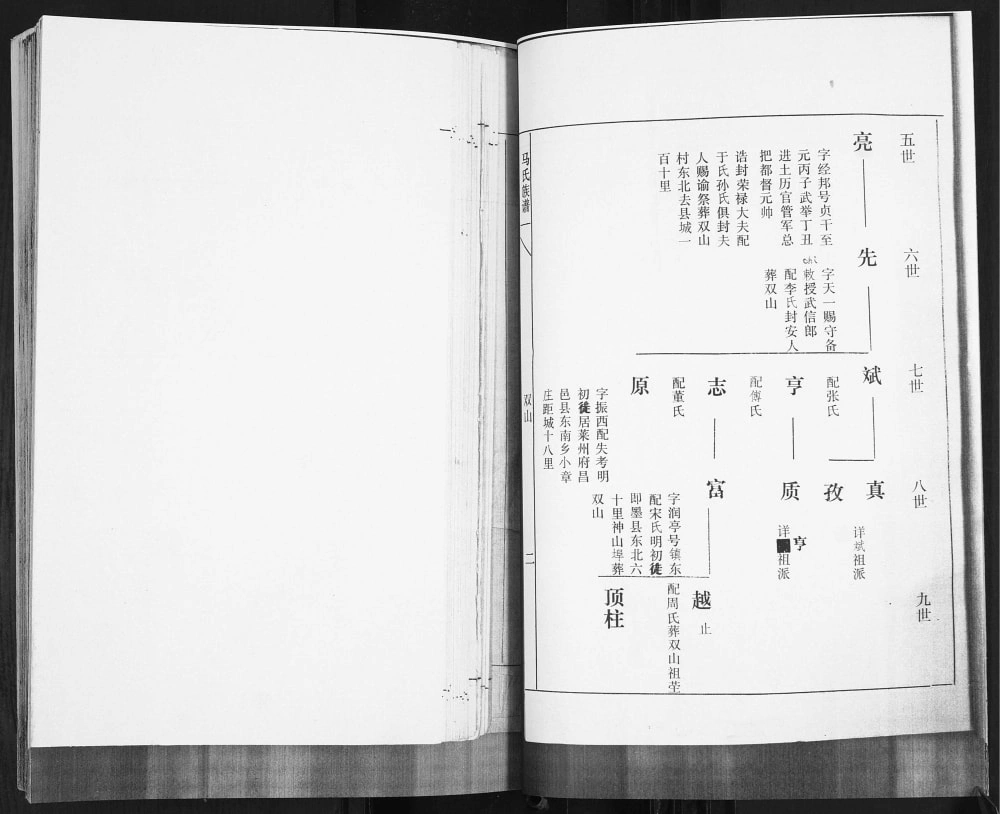 五世
亮
字经邦号贞干至
元丙子武举丁丑
进士历官管军总
把都督元帅
诰封荣禄大夫配
于氏孙氏俱封夫
人赐谕祭葬双山
村东北去县城一
百十里
六世
先
字天一赐守备
chi
敕授武信郎
配李氏封安人
葬双山
七世
斌
配张氏
亨
配傅氏
志
配董氏
原
字振西配失考明
初徒居莱州府昌
邑县东南乡小章
庄距城十八里
八世
真
详斌祖派
孜
质
详亨祖派
富
字润亭号镇东
配宋氏明初徒
即墨县东北六
十里神山埠葬
双山
九世
越
止
配周氏葬双山祖茔
顶柱
马氏族谱
一
双山
二